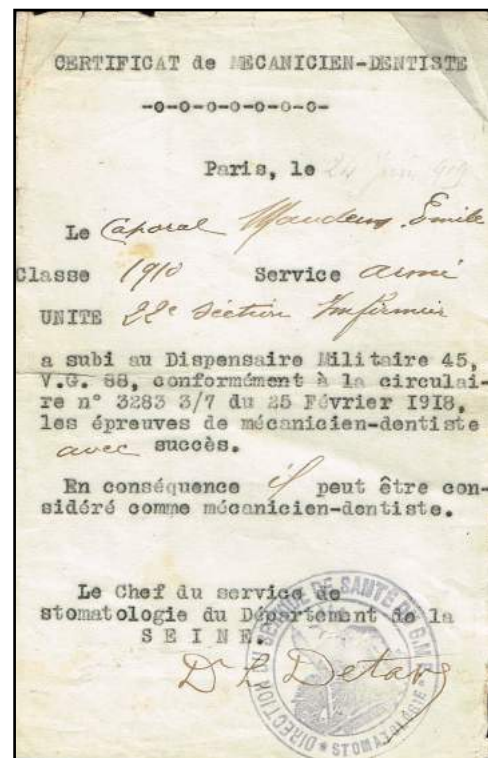 CERTIFICAT de MECANICIEN-DENTISTE
-o-o-o-o-o-o-o-
Paris, le 24 Juin 919
Le Caporal Emile
Classe 1910 Service armé
UNITE 22e Séction Infirmier
a subi au Dispensaire Militaire 45,
V.G. 88, conformément à la circulai-
re n° 3283 3/7 du 25 Février I9I8,
les épreuves de mécanicien-dentiste
avec succès.
En conséquence il peut être con-
sidéré comme mécanicien-dentiste.
Le Chef du service de
stomatologie du Département de la
SEINE.
DIRECTION DU SERVICE DE SANTE DU G.M.P.
* STOMATOLOGIE *
Dr L